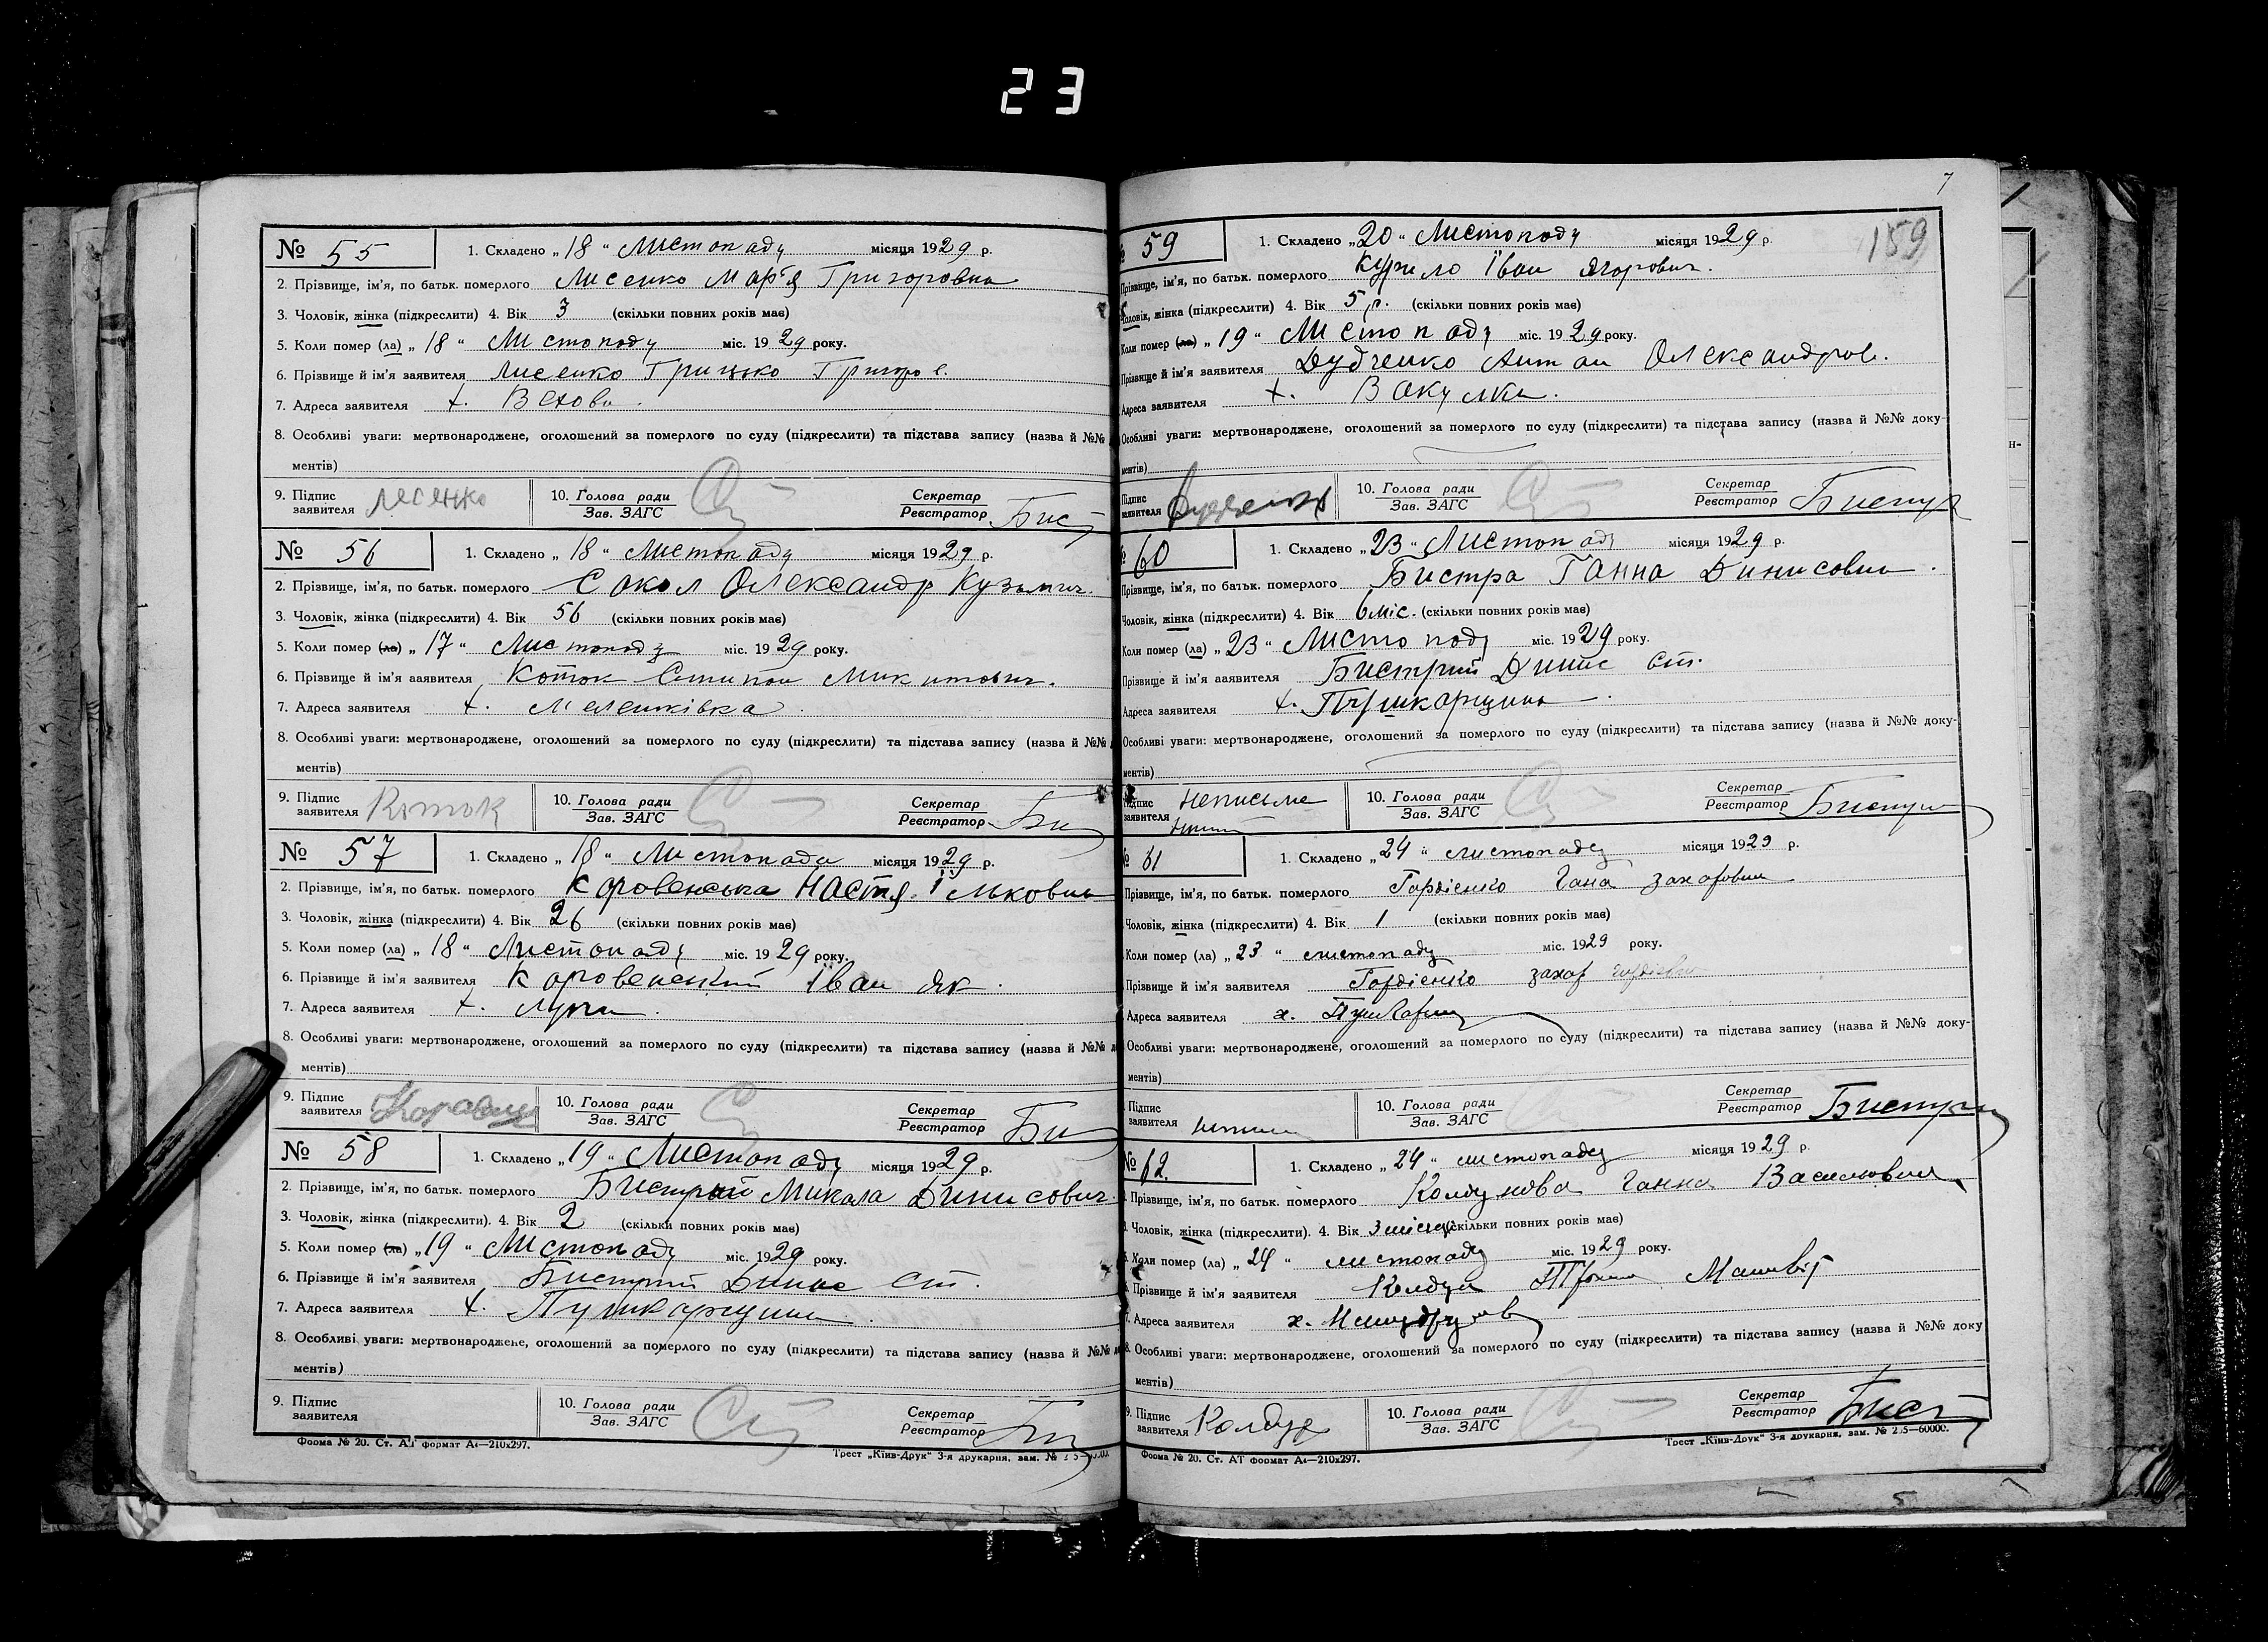 23
№ 55
1. Складено „18“ Листопаду місяця 1929 р.
2. Прізвище, ім'я, по батьк. померлого Лисенко Мар'я Григоровна
3. Чоловік, жінка (підкреслити) 4. Вік 3 (скільки повних років має)
5. Коли помер (ла) „18“ Листопаду міс. 1929 року.
6. Прізвище й ім'я заявителя Лисенко Грицько Григоров.
7. Адреса заявителя х.
8. Особливі уваги: мертвонароджене, оголошений за померлого по суду (підкреслити) та підстава запису (назва й №№
ментів)
9. Підпис заявителя Лесенко 10. Голова ради Зав. ЗАГС Секретар Реєстратор Бист
№ 56
1. Складено „18“ Листопаду місяця 1929 р.
2. Прізвище, ім'я, по батьк. померлого Сокол Олександр Кузьмич.
3. Чоловік, жінка (підкреслити) 4. Вік 56 (скільки повних років має)
5. Коли помер (ла) „17“ Листопаду міс. 1929 року.
6. Прізвище й ім'я заявителя Коток Степан Микитович.
7. Адреса заявителя х.
8. Особливі уваги: мертвонароджене, оголошений за померлого по суду (підкреслити) та підстава запису (назва й №№
ментів)
9. Підпис заявителя Коток 10. Голова ради Зав. ЗАГС Секретар Реєстратор Би
№ 57
1. Складено „18“ Листопада місяця 1929 р.
2. Прізвище, ім'я, по батьк. померлого Коровенська Настя Ільковна
3. Чоловік, жінка (підкреслити) 4. Вік 26 (скільки повних років має)
5. Коли помер (ла) „18“ Листопаду міс. 1929 року.
6. Прізвище й ім'я заявителя Коровенський Іван Як.
7. Адреса заявителя х.
8. Особливі уваги: мертвонароджене, оголошений за померлого по суду (підкреслити) та підстава запису (назва й №№
ментів)
9. Підпис заявителя 10. Голова ради Зав. ЗАГС Секретар Реєстратор Би
№ 58
1. Складено „19“ Листопаду місяця 1929 р.
2. Прізвище, ім'я, по батьк. померлого Бистрий Микола Динисович.
3. Чоловік, жінка (підкреслити). 4. Вік 2 (скільки повних років має)
5. Коли помер (ла) „19“ Листопаду міс. 1929 року.
6. Прізвище й ім'я заявителя Бистрий Динис Ст.
7. Адреса заявителя х. Пушкарщина.
8. Особливі уваги: мертвонароджене, оголошений за померлого по суду (підкреслити) та підстава запису (назва й №№
ментів)
9. Підпис заявителя 10. Голова ради Зав. ЗАГС Секретар Реєстратор
Форма № 20. Ст. АТ формат А4—210х297. Трест „Київ-Друк“ 3-я друкарня, зам. №
7
159
59
1. Складено „20“ Листопаду місяця 1929 р.
Прізвище, ім'я, по батьк. померлого Курило Іван Ягорович.
Чоловік, жінка (підкреслити) 4. Вік 5 р. (скільки повних років має)
Коли помер (ла) „19“ Листопаду міс. 1929 року.
Прізвище й ім'я заявителя Дудченко Антон Олександров.
Адреса заявителя х. Вакулка.
Особливі уваги: мертвонароджене, оголошений за померлого по суду (підкреслити) та підстава запису (назва й №№ доку-
ментів)
Підпис заявителя 10. Голова ради Зав. ЗАГС Секретар Реєстратор Бистр
60
1. Складено „23“ Листопаду місяця 1929 р.
Прізвище, ім'я, по батьк. померлого Бистра Ганна Динисовна.
Чоловік, жінка (підкреслити) 4. Вік 6 міс. (скільки повних років має)
Коли помер (ла) „23“ Листопаду міс. 1929 року.
Прізвище й ім'я заявителя Бистрий Динис Ст.
Адреса заявителя х. Пушкарщина.
Особливі уваги: мертвонароджене, оголошений за померлого по суду (підкреслити) та підстава запису (назва й №№ доку-
ментів)
Підпис заявителя неписьме 10. Голова ради Зав. ЗАГС Секретар Реєстратор Бистри
№ 61
1. Складено „24“ листопаду місяця 1929 р.
Прізвище, ім'я, по батьк. померлого Гордієнко Гана Захаровна
Чоловік, жінка (підкреслити) 4. Вік 1 (скільки повних років має)
Коли помер (ла) „23“ листопаду міс. 1929 року.
Прізвище й ім'я заявителя Гордієнко Захар
Адреса заявителя х.
Особливі уваги: мертвонароджене, оголошений за померлого по суду (підкреслити) та підстава запису (назва й №№ доку-
ментів)
Підпис заявителя 10. Голова ради Зав. ЗАГС Секретар Реєстратор Бистри
№ 62.
1. Складено „24“ листопаду місяця 1929 р.
Прізвище, ім'я, по батьк. померлого Колдунова Ганна Василовна
Чоловік, жінка (підкреслити). 4. Вік 3 місяц (скільки повних років має)
Коли помер (ла) „24“ листопаду міс. 1929 року.
Прізвище й ім'я заявителя Колдун
Адреса заявителя х.
8. Особливі уваги: мертвонароджене, оголошений за померлого по суду (підкреслити) та підстава запису (назва й №№ доку
ментів)
9. Підпис заявителя Колдун 10. Голова ради Зав. ЗАГС Секретар Реєстратор Бист
Форма № 20. Ст. АТ формат А4—210х297. Трест „Київ-Друк“ 3-я друкарня, зам. № 235—60000.